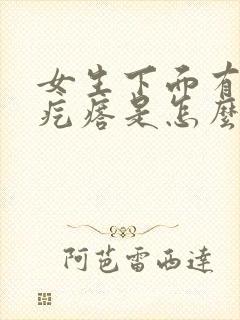 女生下面有
疙瘩是怎麼
阿芭雷西達